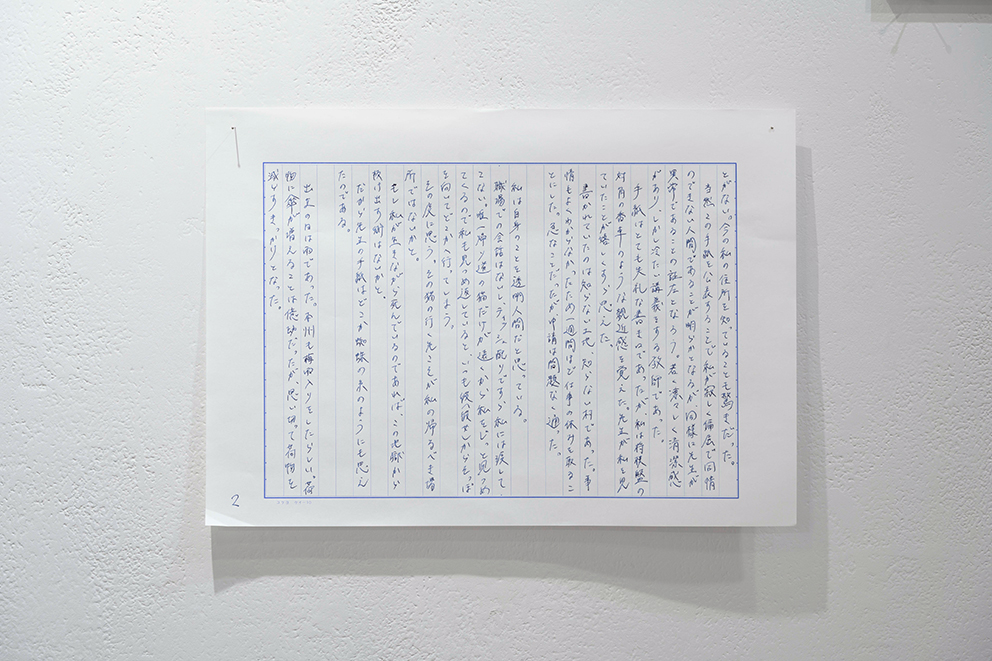 とがない。今の私の住所を知っていることも驚きだった。
当然この手紙を公表することで私が寂しく偏屈で同情
のできない人間であることが明らかとなるが、同様に先生が
異常であることの証左となろう。若く凛々しく清潔感
があり、しかし冷たい講義をする教師であった。
手紙はとても失礼な書きものであったが私は将棋盤の
対角の香車のような親近感を覚えた。先生が私を見
ていたことが嬉しくすら思えた。
書かれていたのは知らない土地、知らない村であった。事
情もよくわからないため一週間ほど仕事の休みを取るこ
とにした。急なことだったが申請は問題なく通った。
私は自身のことを透明人間だと思っている。
職場での会話はないし、ティッシュ配りですら私には渡して
こない。唯一帰り道の猫だけが遠くから私をじっと見つめ
てくるので私も見つめ返していると、いつも彼(彼女)からそっぽ
を向いてどこかへ行ってしまう。
その度に思う。その猫の行く先こそが私の帰るべき場
所ではないかと。
もし私が生きながら死んでいるのであれば、この地獄から
抜け出す術はないかと。
だから先生の手紙はどこか蜘蛛の糸のようにも思え
たのである。
出立の日は雨であった。本州も梅雨入りをしたらしい。荷
物に傘が増えることは億劫だったが、思い切って荷物を
減らすきっかけとなった。
2